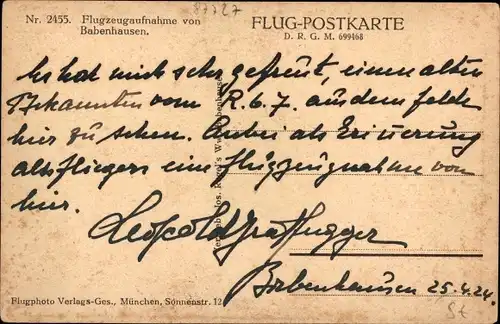 87727
Nr. 2455. Flugzeugaufnahme von
Babenhausen.
FLUG-POSTKARTE
D. R. G. M. 699468
Es hat mich sehr gefreut, einen alten
Bekannten vom R. 6. 7. aus dem felde
hier zu sehen. Anbei als Erinerung
als fliegers eine flugzeugnahme von
hier.
Leopold Graf Fugger
Babenhausen 25.4.24.
Flugphoto Verlags-Ges., München, Sonnenstr. 12